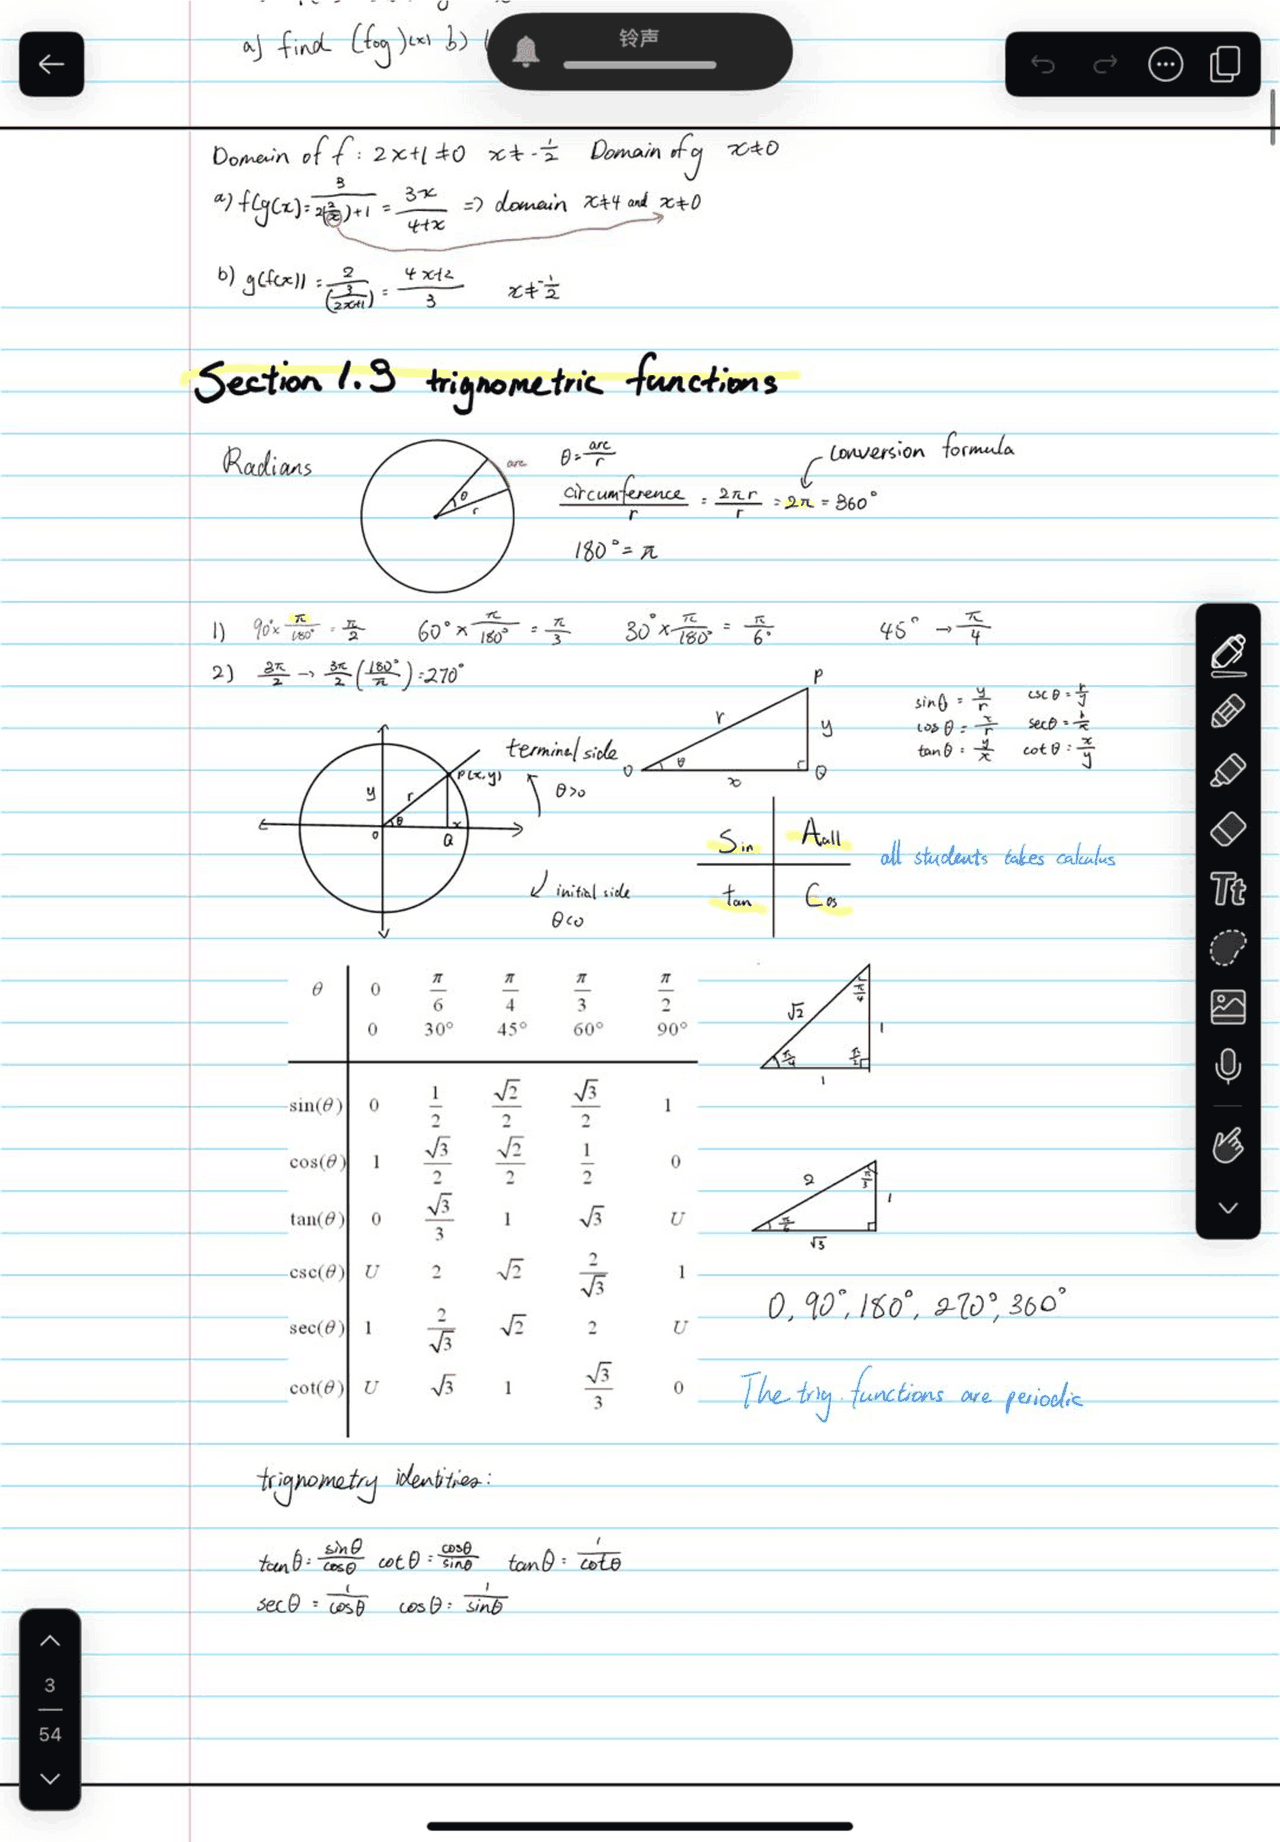 a) find (fog)(x) b) (
铃声
Domain of f : 2x+1≠0 x≠-1/2 Domain of g x≠0
a) f(g(x)= 3/(2(2/x)+1) = 3x/(4+x) => domain x≠4 and x≠0
b) g(f(x)) = 2/(3/(2x+1)) = (4x+2)/3 x≠-1/2
Section 1.3 trignometric functions
Radians
arc
θ
r
θ=arc/r
conversion formula
circumference/r = 2πr/r = 2π = 360°
180°=π
1) 90°x π/180° = π/2 60°x π/180° = π/3 30°x π/180° = π/6° 45° → π/4
2) 3π/2 → 3π/2 (180°/π) = 270°
P
r
y
O
θ
r
Q
x
sinθ = y/r cscθ = r/y
cosθ = x/r secθ = r/x
tanθ = y/x cotθ = x/y
terminal side
P(x,y)
θ>0
y
r
θ
x
O
Q
initial side
θ<0
Sin Aall
tan Cos
all students takes calculus
θ 0 π/6 π/4 π/3 π/2
0 30° 45° 60° 90°
sin(θ) 0 1/2 √2/2 √3/2 1
cos(θ) 1 √3/2 √2/2 1/2 0
tan(θ) 0 √3/3 1 √3 U
csc(θ) U 2 √2 2/√3 1
sec(θ) 1 2/√3 √2 2 U
cot(θ) U √3 1 √3/3 0
√2
π/4
1
π/4
π/2
1
2
π/3
1
π/6
√3
0, 90°, 180°, 270°, 360°
The trig. functions are periodic
trignometry identities:
tanθ = sinθ/cosθ cotθ = cosθ/sinθ tanθ = 1/cotθ
secθ = 1/cosθ cosθ = 1/sinθ
Tt
3
54